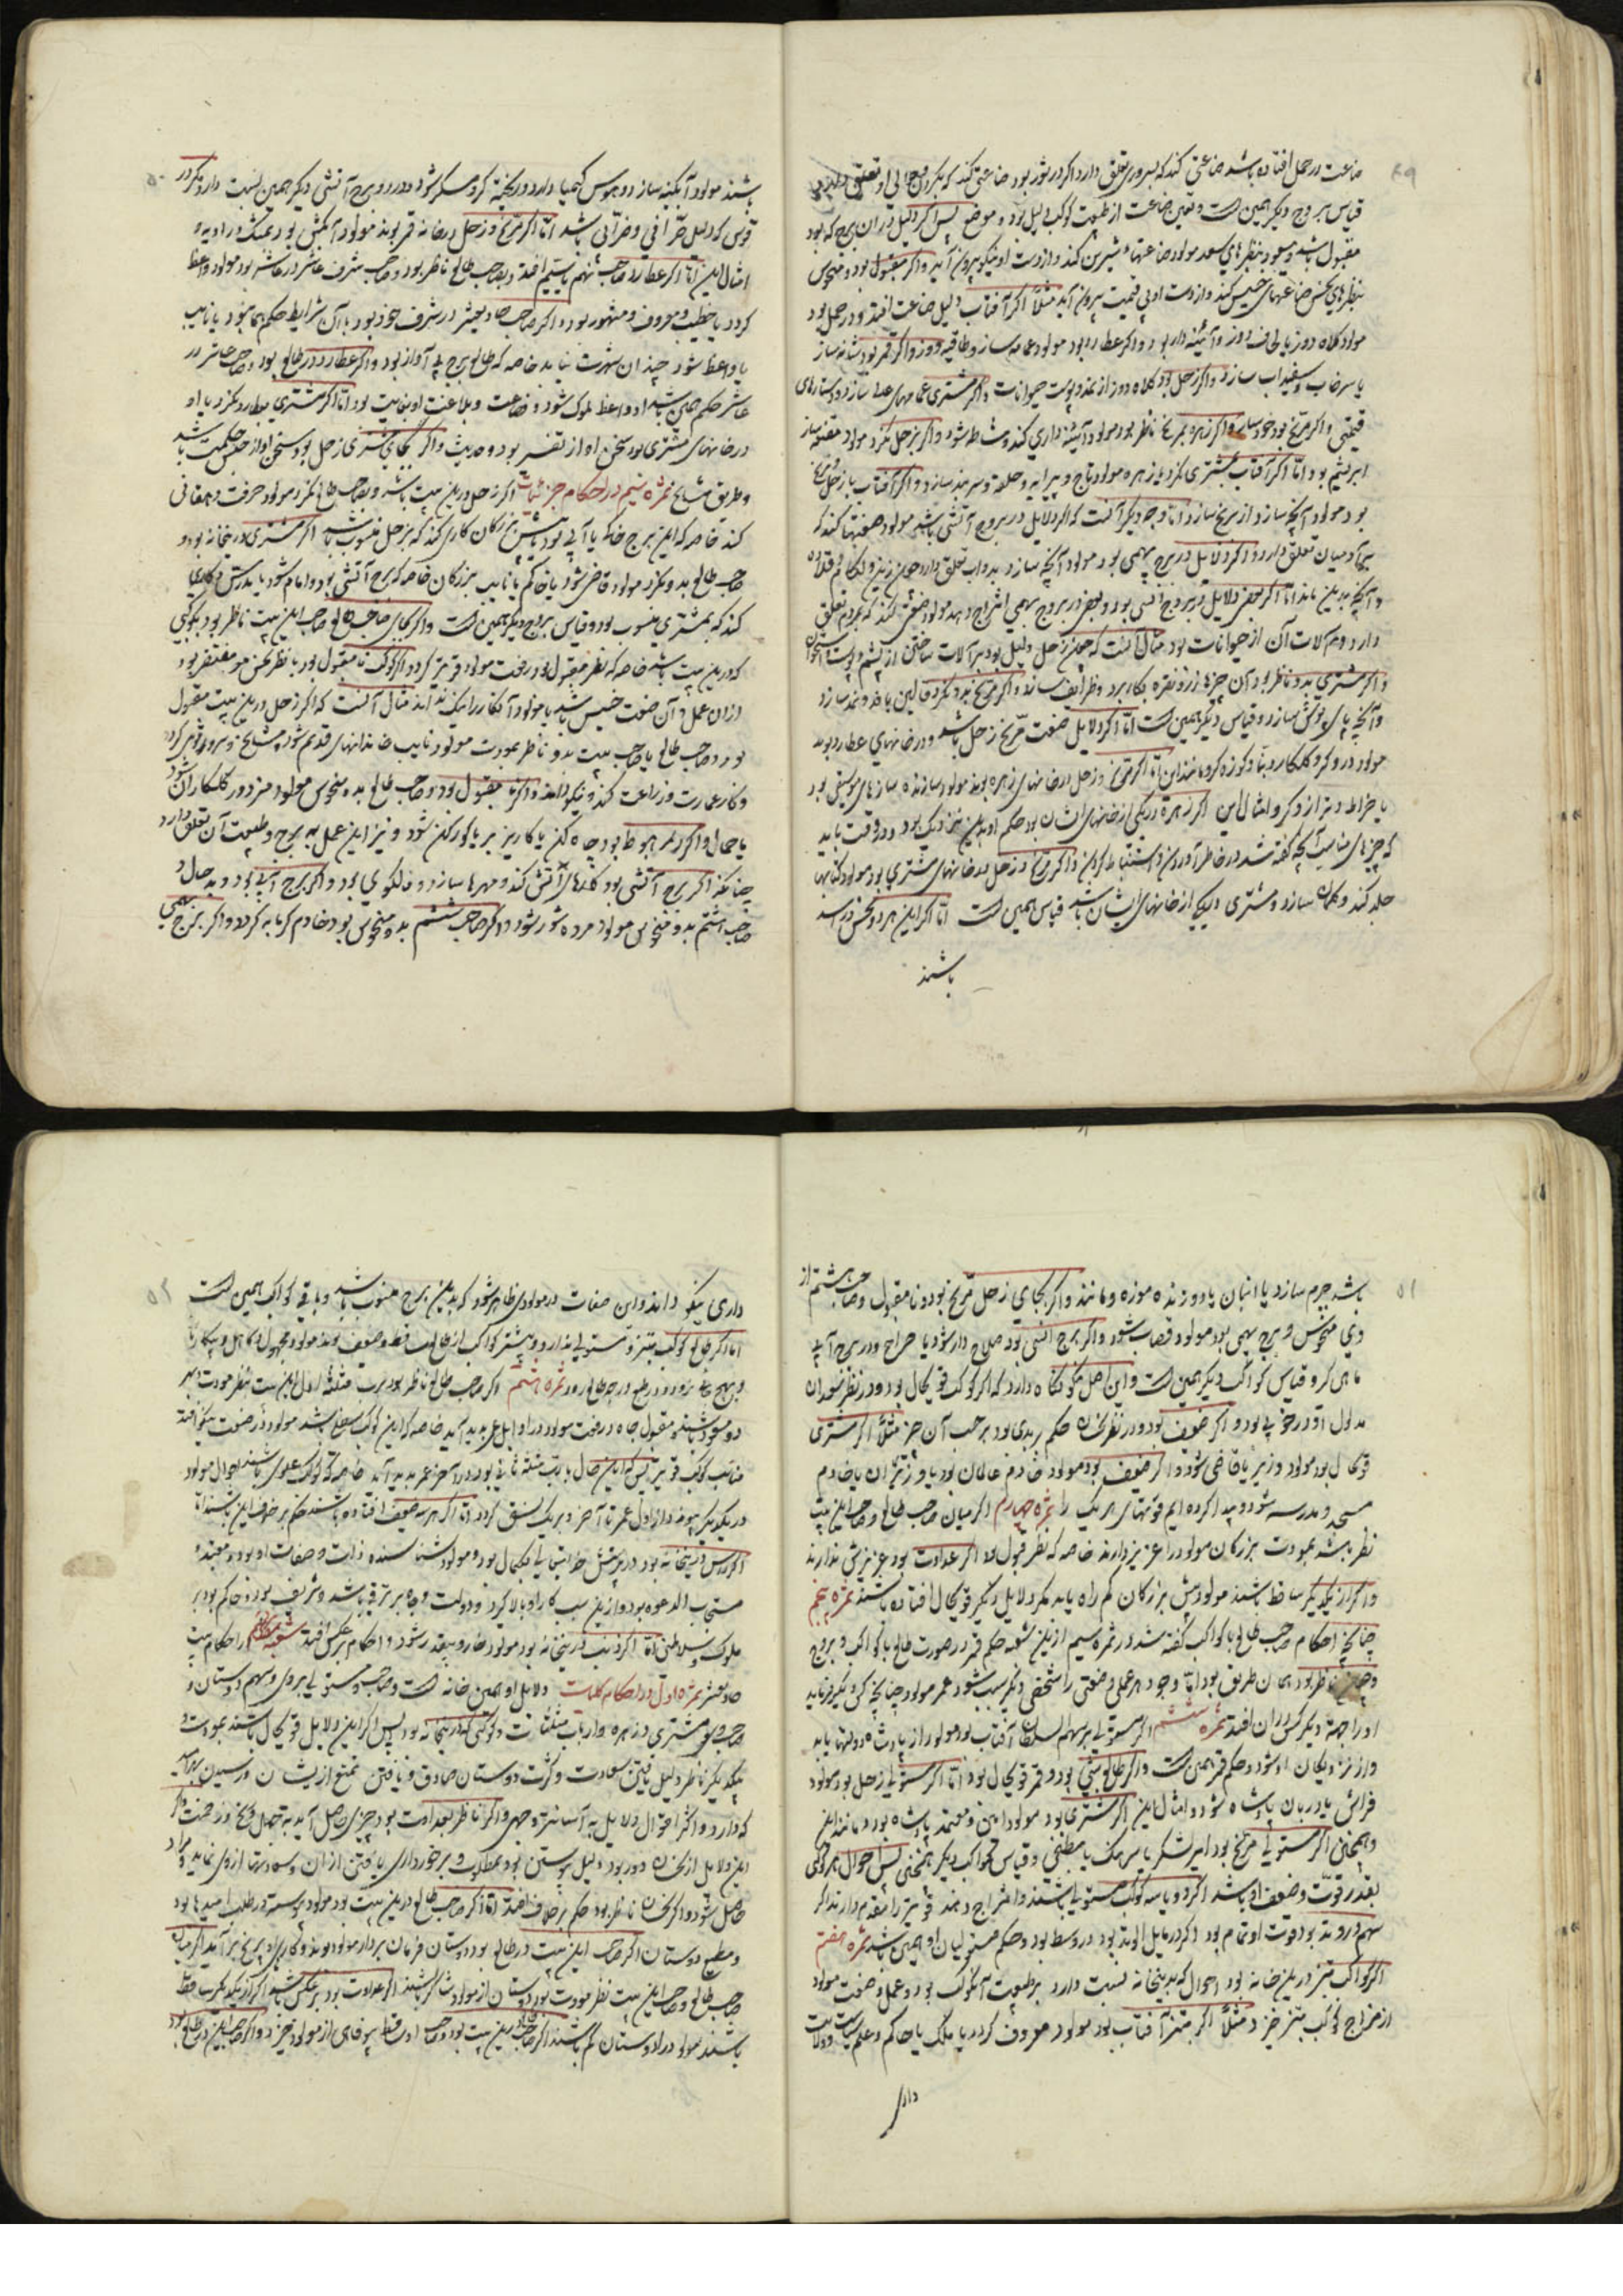 ۴۹
صناعت در حمل افتاده باشد صناعتی کند که بسر وروی تعلق دارد و اگر در ثور بود صناعتی کند که بگردن و حوالی او تعلق دارد
قیاس بروج دیگر همین است و تعین صناعت از طبیعت کوکب دلیل بود و موضع پس اگر دلیل در آن برج که بود
مقبول باشد و مسعود بنظرهای سعد مولود صناعتهاء شیرین کند و از دست او نیکو بیرون آید و اگر نامقبول بود و منحوس
بنظرهای نحس صناعهای خسیس کند و از دست او بی قیمت بیرون آید مثلاً اگر آفتاب دلیل صناعت افتد و در حمل بود
مولود کلاه دوز یا لحاف دوز و آئینه دار بود و اگر عطارد بود مولود عمامه ساز و طاقیه دوز و اگر قمر بود شانه ساز
یا سرخاب و سفیداب سازد و اگر زحل بود کلاه دوز از نمد و پوست حیوانات و اگر مشتری عمامهای سازد و دستارهای
قیمتی و اگر مریخ بود خود سازد و اگر زهره بمریخ ناظر بود مولود آئینه داری کند و مشاطه شود و اگر بزحل نگرد مولود مقنعه ساز
ابریشم بود امّا اگر آفتاب بمشتری نگرد یا زهره مولود تاج و پیرایه و حلقه و سربند سازد و اگر آفتاب با زحل
بود مولود آنچه سازد از مریخ سازد امّا وجه دیگر آنست که اگر دلایل در بروج آتشی باشد مولود صنعتها کند که
بآدمیان تعلق دارد و اگر دلایل در برج بهیمی بود مولود آنچه سازد بدواب تعلق دارد چون زین و لگام و قلاده
و آنچه بدین ماند امّا اگر بعضی دلایل در بروج انسی بود و بعضی در بروج بهیمی امتزاج دهد مولود صنعتی کند که بمردم تعلق
دارد و هم آلات آن از حیوانات بود مثال آنست که چون زحل دلیل بود بر آلات ساختن از پشم و پوست و استخوان
و اگر مشتری بدو ناظر بود آن چیزها بزر و نقره بکار برد و ظرایف سازد و اگر مریخ بدو نگرد قالین بافد و نمد سازد
و آنچه پای پوش سازد و قیاس دیگر همین است امّا اگر دلایل صنعت مریخ زحل باشد و در خانهای عطارد بوند
مولود درودگر و گلکار و بنّا و کوزه گر و مانند این امّا اگر مریخ و زحل در خانهای زهره بوند مولود سازنده سازهای موسیقی بود
یا خراط و بزاز و گر و امثال این اگر زهره در یکی از خانهای ایشان بود حکم او بدین نزدیک بود و در وقت باید
که چیزهای مناسب آنچه گفته شد در خاطر آوردن و استنباط کردن و اگر مریخ و زحل در خانهای مشتری بود مولود کتابها
جلد کند و کمان سازد و مشتری در یکی از خانهای ایشان باشد قیاس همین است امّا اگر این هر دو نحس در اسد
باشند
۵۰
باشند مولود آبگینه ساز و هوس کیمیا دارد و ریخته گر و مسگر شود و در دو برج آتشی دیگر همین نسبت دارد مگر در
قوس که دلیل صرّافی و ضرّابی باشد امّا اگر مریخ و زحل در خانه قمر بوند مولود آبکش بود و نمک و ادویه و
امثال این امّا اگر عطارد صاحب نهم یا سیّم افتد و بصاحب طالع ناظر بود و صاحب شرف عاشر در عاشر بود مولود واعظ
گردد یا خطیب و معروف و مشهور بود و اگر صاحب حادیعشر در شرف خود بود با آن شرایط حکم همان بود یا نایب
یا واعظ شود چندان شهرت نیابد خاصه که طالع برج بی آواز بود و اگر عطارد در طالع بود و صاحب عاشر در
عاشر حکم همین باشد او واعظ ملوک شود و فصاحت و بلاغت او بغایت بود امّا اگر مشتری بعطارد نگرد یا او
در خانهای مشتری بود سخن او از تفسیر بود و حدیث و اگر بجای مشتری زحل بود سخن او از جنس حکمت باشد
و طریق مشایخ ثمرهٔ سیم در احکام جزئیات اگر زحل درین بیت باشد و بصاحب طالع نگرد مولود حرفت دهقانی
کند خاصه که این برج خاکی یا آبی بود یا پیش بزرگان کاری کند که بزحل منسوب باشد اگر مشتری درین خانه بود و
صاحب طالع بدو نگرد مولود قاضی شود یا حاکم یا نایب بزرگان خاصه که برج آتشی بود و امام شود یا مدرس و کاری
کند که بمشتری منسوب بود و قیاس بروج دیگر همین است و اگر بجای صاحب طالع صاحب این بیت ناظر بود بکوکبی
که درین بیت باشد خاصه که نظر مقبول بود رفعت مولود قوی تر گردد و اگر کوکب نامقبول بود یا نظر نحس بود مفتقر بود
از آن عمل و آن صنعت خسیس باشد یا مولود آنکار را نیک نداند مثال آنست که اگر زحل درین بیت مقبول
بود و صاحب طالع یا صاحب بیت بدو ناظر بمودت مولود نایب خاندانهای قدیم شود و مشایخ و سرور قوم گردد
و کار عمارت و زراعت کند و نیکو داند و اگر نامقبول بود و صاحب طالع بدو منحوس مولود مزدور گلکاران شود
یا حمال و اگر در هبوط بود چاه کن یا کاریز بر یا گورکن شود و نیز این عمل به برج و طبیعت آن تعلق دارد
چنانکه اگر برج آتشی بود کارهای آتش کند و مهرها سازد و فالگوی بود و اگر برج آبی بود و بد حال و
صاحب هشتم بدو منحوس مولود مرده شور شود و اگر صاحب ششم بدو منحوس بود خادم گرمابه گردد و اگر برج بهیمی
۵۱
باشد چرم سازد یا انبان یا دوزنده موزه و مانند و اگر بجای زحل مریخ بود و نامقبول و صاحب هشتم از
وی منحوس و برج بهیمی بود مولود قصاب شود و اگر برج انسی بود سلاح دار شود یا جراح و در برج آبی
ماهی گیر و قیاس کواکب دیگر همین است و این اصل نگاه دارد که اگر کوکب قوی حال بود و در نظر سعدان
مدلول او در خوبی بود و اگر ضعیف بود و در نظر نحسان حکم بر بدی بود بر حسب آن چیز مثلاً اگر مشتری
قوی حال بود مولود وزیر یا قاضی شود و اگر ضعیف بود مولود خادم عالمان بود یا وزیران یا خادم
مسجد و مدرسه شود و پیدا کرده ایم قوتهای هر یک را ثمرهٔ چهارم اگر میان صاحب طالع و صاحب این بیت
نظر باشد بمودت بزرگان مولود را عزیز دارند خاصه که نظر قبول بود اگر عداوت بود عزیزش ندارند
و اگر از یکدیگر ساقط باشند مولود پیش بزرگان کم راه یابد مگر دلایل دیگر قوی حال افتاده باشند ثمرهٔ پنجم
چنانچه احکام صاحب طالع با کواکب گفته شد در ثمره سیم ازین شعبه حکم قمر در صورت طالع با کواکب و بروج
و ناظر بود همان طریق بود امّا وجود هر عملی و صنعتی را شخصی دیگر سبب شود عمر مولود چنانچه کسی دیگر فرماید
او را جهة دیگر کس در آن افتد ثمرهٔ ششم اگر مستولی بر سهم السلطان آفتاب بود مولود را از پادشاه دولتها یابد
و از نزدیکان او شود و حکم قمر همین است و اگر طالع شبی بود و قمر قوی حال بود امّا اگر مستولی زحل بود مولود
فرّاش یا دربان پادشاه شود و امثال این اگر مشتری بود مولود امین و معتمد پادشاه بود و مانند این
و همچنین اگر مستولی مریخ بود امیر لشکر یا سرهنگ یا مطبخی و قیاس کواکب دیگر همچنین پس احوال هر کوکبی
بقدر قوّت و ضعف او باشد اگر دو یا سه کوکب مستولی باشند و امتزاج دهند قوی تر را مقدم دارند اگر
سهم در وتد بود قوت او تمام بود اگر در مایل الوتد بود در وسط بود و حکم مستولیان او همین باشد ثمرهٔ هفتم
اگر کواکب متحیّز درین خانه بود احوال که بدین خانه نسبت دارد بر طبیعت آن کوکب بود و عمل و صنعت مولود
از مزاج کوکب متحیّز خیزد مثلاً اگر متحیّز آفتاب بود مولود معروف گردد یا ملک یا حاکم و علم سیاست و ولایت
دار
۵۲
داری نیکو داند و این صفات در مولودی ظاهر شود که بدین برج منسوب باشد و باقی کواکب همین است
امّا اگر طالع کوکب متحیّز و مستولی ندارد و بیشتر کواکب از طالع ساقط و ضعیف بوند مولود مجهول و کاهل و بیکار
ثمرهٔ هشتم اگر صاحب طالع ناظر بود برب مثلثهٔ اول این بیت بنظر مودت و هر
دو مسعود باشند و مقبول جاه و رفعت مولود در اوایل عمر پدید آید خاصه که این کوکب سفلی باشد مولود در صنعت نیکو افتد
در یکدیگر پیوندد و از اول عمر تا آخر بر یک نسق گردد امّا اگر هر سه ضعیف افتاده باشند حکم بر خلاف این باشد امّا
اگر راس درین خانه بود درویش خدای تعالی بکمال بود و مولود شناسنده ذات و صفات او بود و معتبد و
مستجاب الدعوه بود و ازین سبب کار او بالا گیرد و دولت و جاه برتر یابد و شریف بود و حاکم بود بر
ملوک و سلاطین امّا اگر ذنب درین خانه بود مولود خوار و بیقدر شود و احکام بر عکس افتد شعبهٔ یازدهم در احکام بیت
حادیعشر ثمرهٔ اول در احکام کلیات دلایل او همین خانه است و صاحب و مستولی بر وی و سهم دوستان و
صاحب وی و مشتری و زهره و ارباب مثلثات و کوکبی که درین خانه بود پس اگر این دلایل قوی حال باشند بمودت و
بیکدیگر ناظر دلیل یافتن سعادت و کثرت دوستان صادق و یافتن تمتع از ایشان و رسیدن بهر امید
که دارد و اکثر احوال دلایل به آسانی و جهی و اگر ناظر بعداوت بود چیزی حاصل آید به تحمل رنج و زحمت و اگر
این دلایل از نحسان دور بود دلیل پیوستن بود بمطلوب و برخورداری یافتن از آن و وسعادتها روزی نماید و مراد
حاصل شود و اگر نحسان ناظر بود حکم بر خلاف افتد امّا اگر صاحب طالع درین بیت بود مولود پیوسته در طلب امیدها بود
و مطیع دوستان اگر صاحب این بیت در طالع بود دوستان فرمان بردار مولود بوند و کار برآید بی رنج برآید اگر میان
صاحب طالع و صاحب این بیت نظر مودت بود دوستان از مولود شاکر باشند اگر عداوت بود بر عکس باشد اگر از یکدیگر ساقط
باشند مولود را دوستان کم باشند اگر صاحب طالع درین بیت بود و صاحب او ساقط بیوفای از مولود خیزد و اگر صاحب این در طالع بود